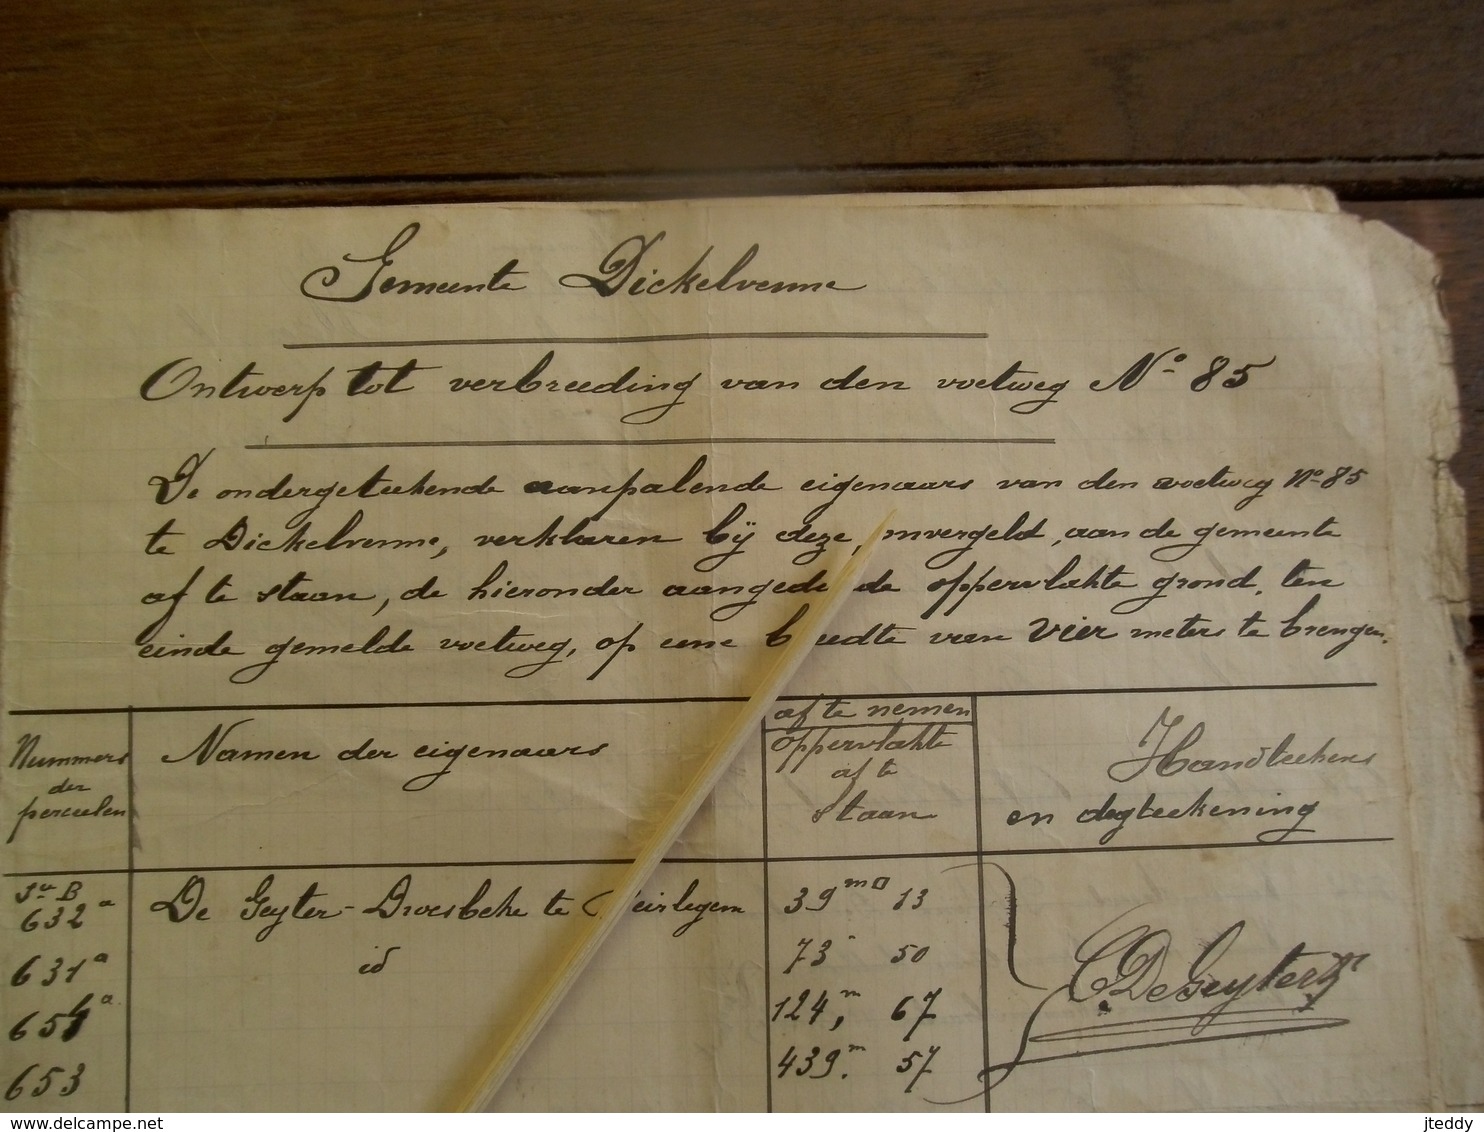 Gemeente Dickelvenne
Ontwerp tot verbreeding van den voetweg No 85
De ondergeteekende aanpalende eigenaars van den voetweg No 85
te Dickelvenne, verklaren bij deze, onvergeld, aan de gemeente
af te staan, de hieronder aangede de oppervlakte grond, ten
einde gemelde voetweg, op eene breedte van vier meters te brengen.
Nummers der perceelen
Namen der eigenaars
af te nemen
oppervlakte af te staan
Handteekens en dagteekening
Sie B
632a De Geyter-Droesbeke te Beirlegem 39 m□ 13
631a id 73 50
651a 124, m 67
653 439. m 57
C. De Geyter
jteddy